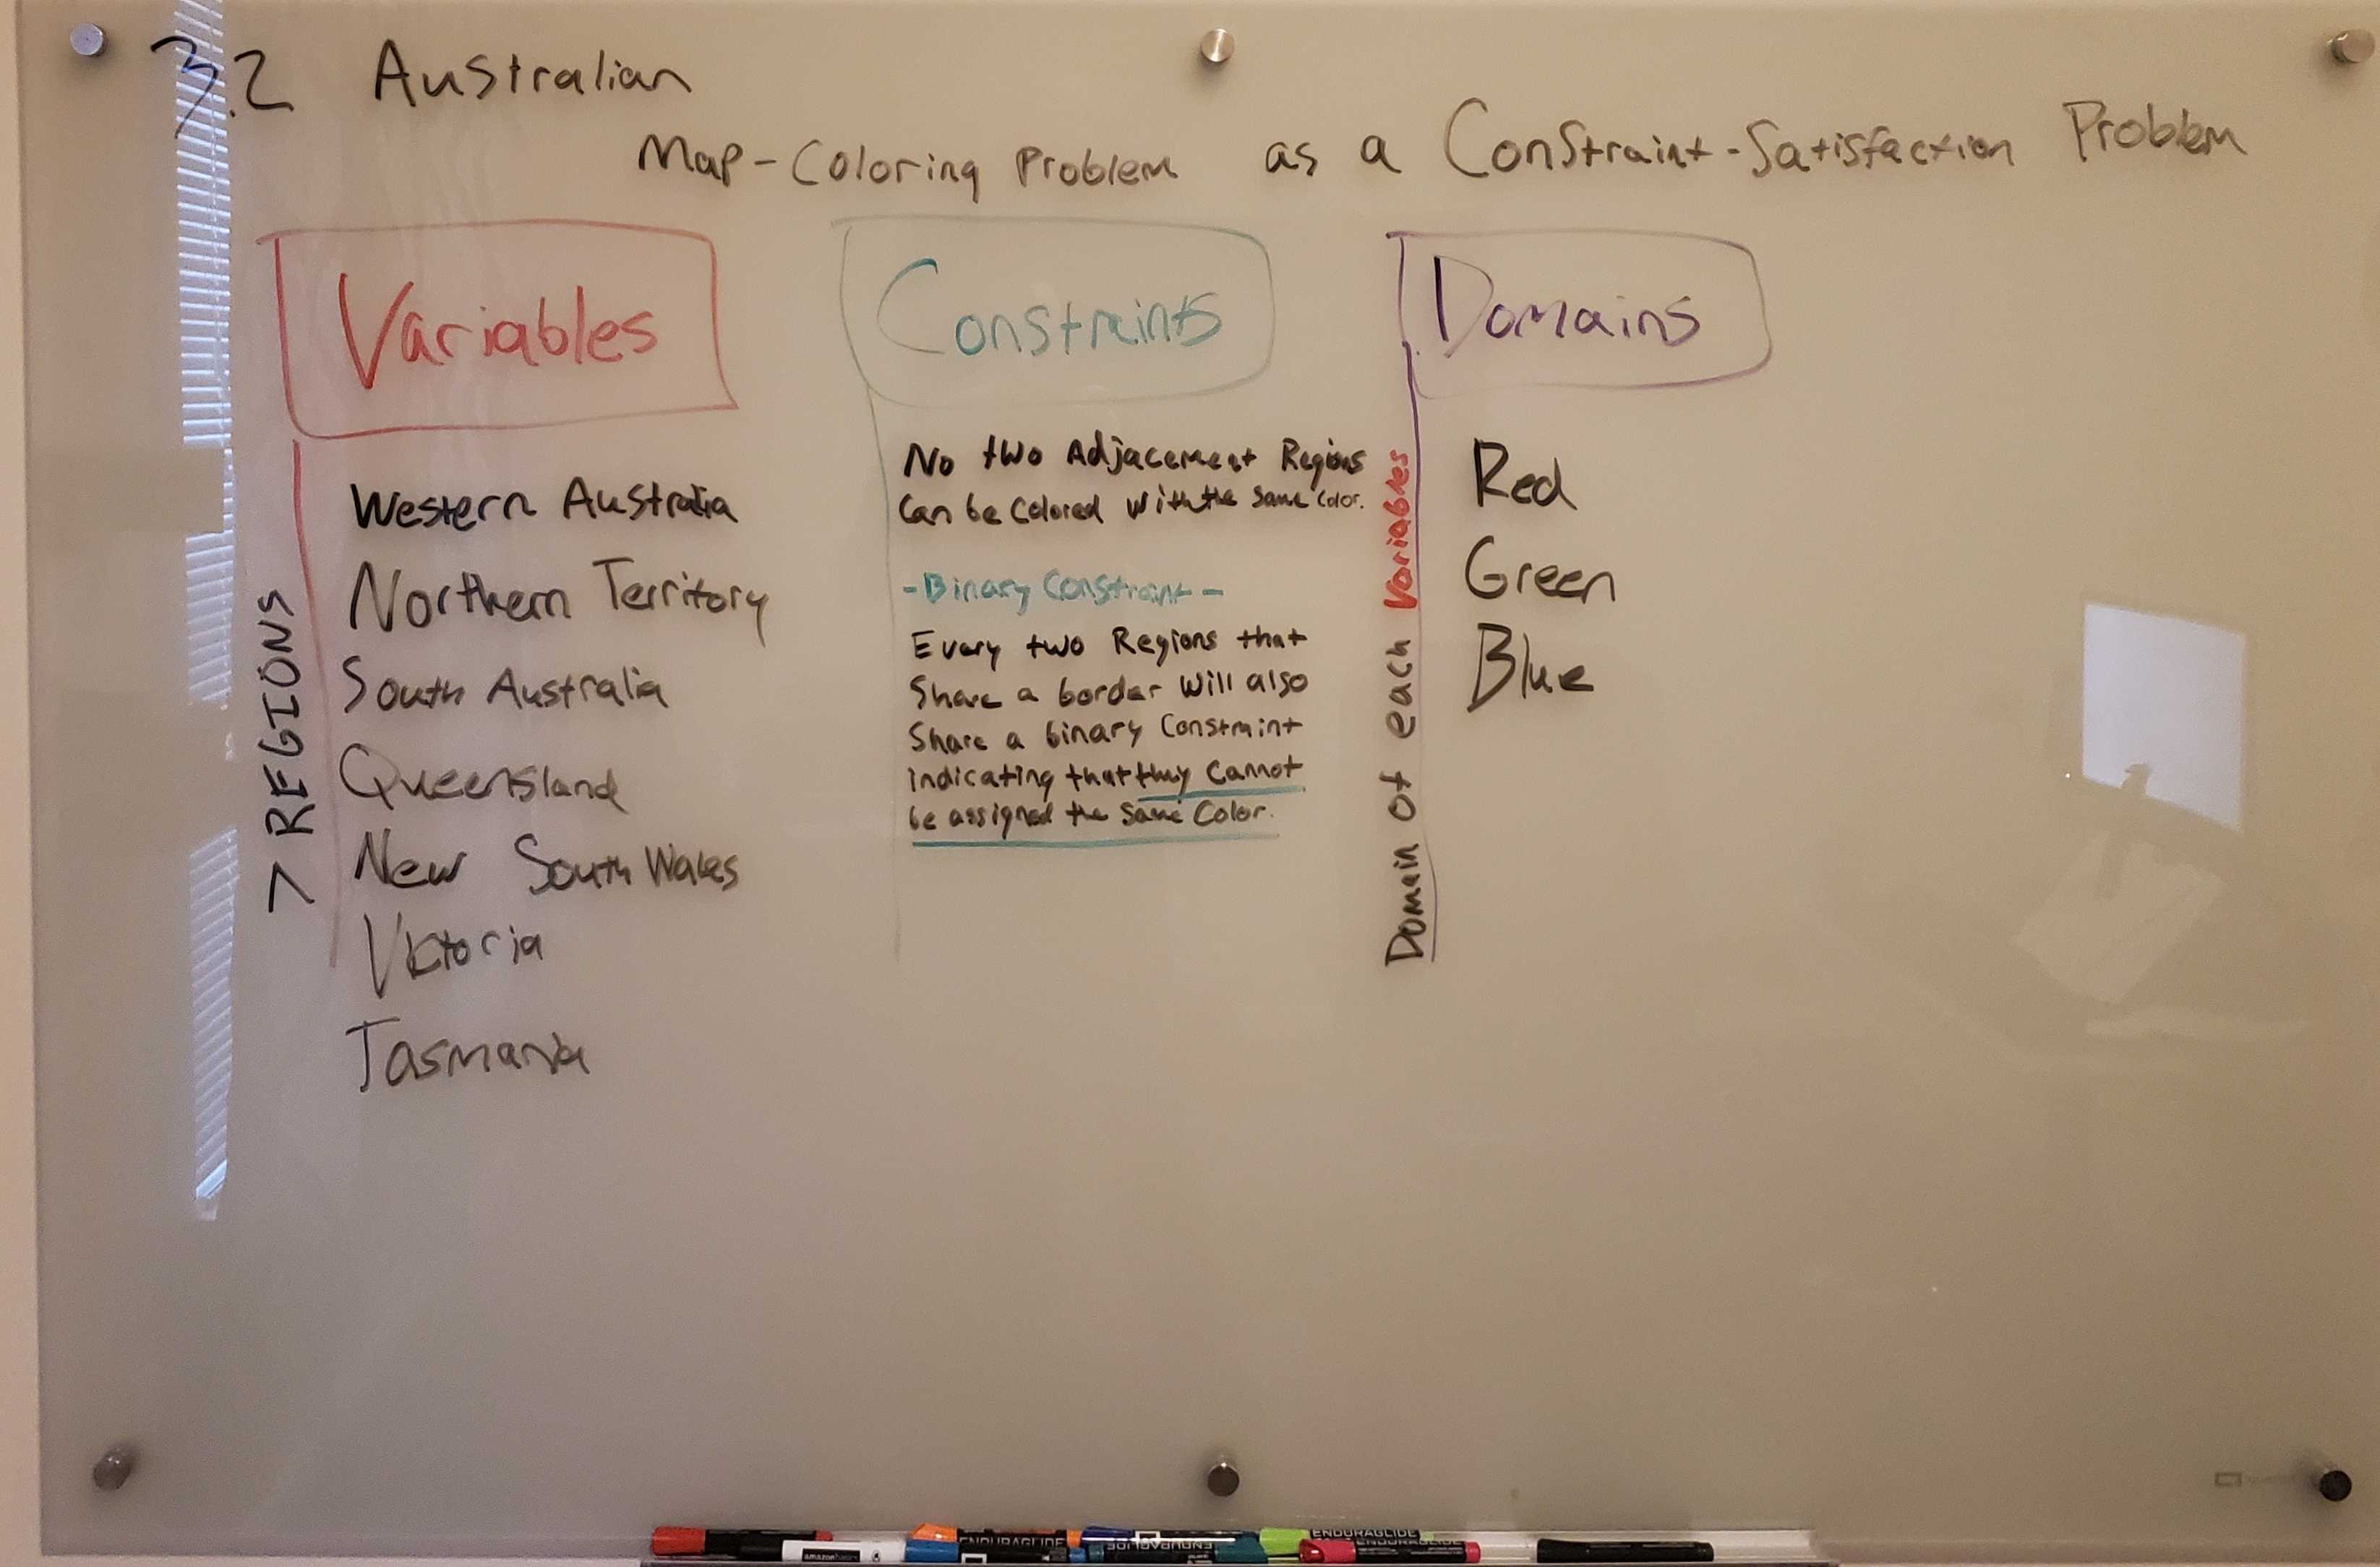 3.2 Australian
Map-Coloring Problem as a Constraint-Satisfaction Problem
Variables
7 REGIONS
Western Australia
Northern Territory
South Australia
Queensland
New South Wales
Victoria
Tasmania
Constraints
No two Adjacement Regions
Can be Colored with the Same Color.
-Binary Constraint-
Every two Regions that
Share a border will also
Share a binary Constraint
indicating that they Cannot
be assigned the Same Color.
Domains
Domain of each Variables
Red
Green
Blue
amazonbasics
ENDURAGLIDE
ENDURAGLIDE
ENDURAGLIDE
ENDURAGLIDE